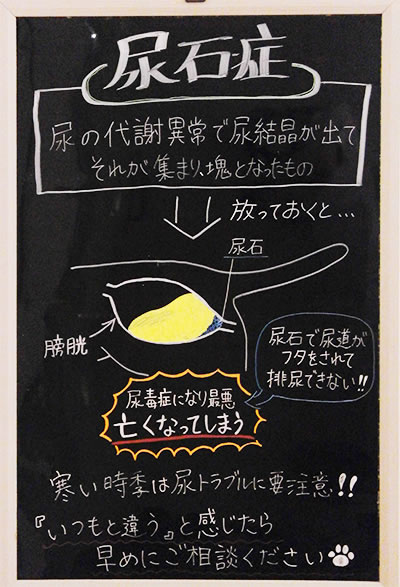 尿石症
尿の代謝異常で尿結晶が出て
それが集まり、塊となったもの
放っておくと…
尿石
膀胱
尿石で尿道が
フタをされて
排尿できない!!
尿毒症になり最悪
亡くなってしまう
寒い時季は尿トラブルに要注意!!
『いつもと違う』と感じたら
早めにご相談ください